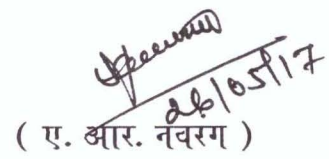 26/05/17
( ए. आर. नवरंग )